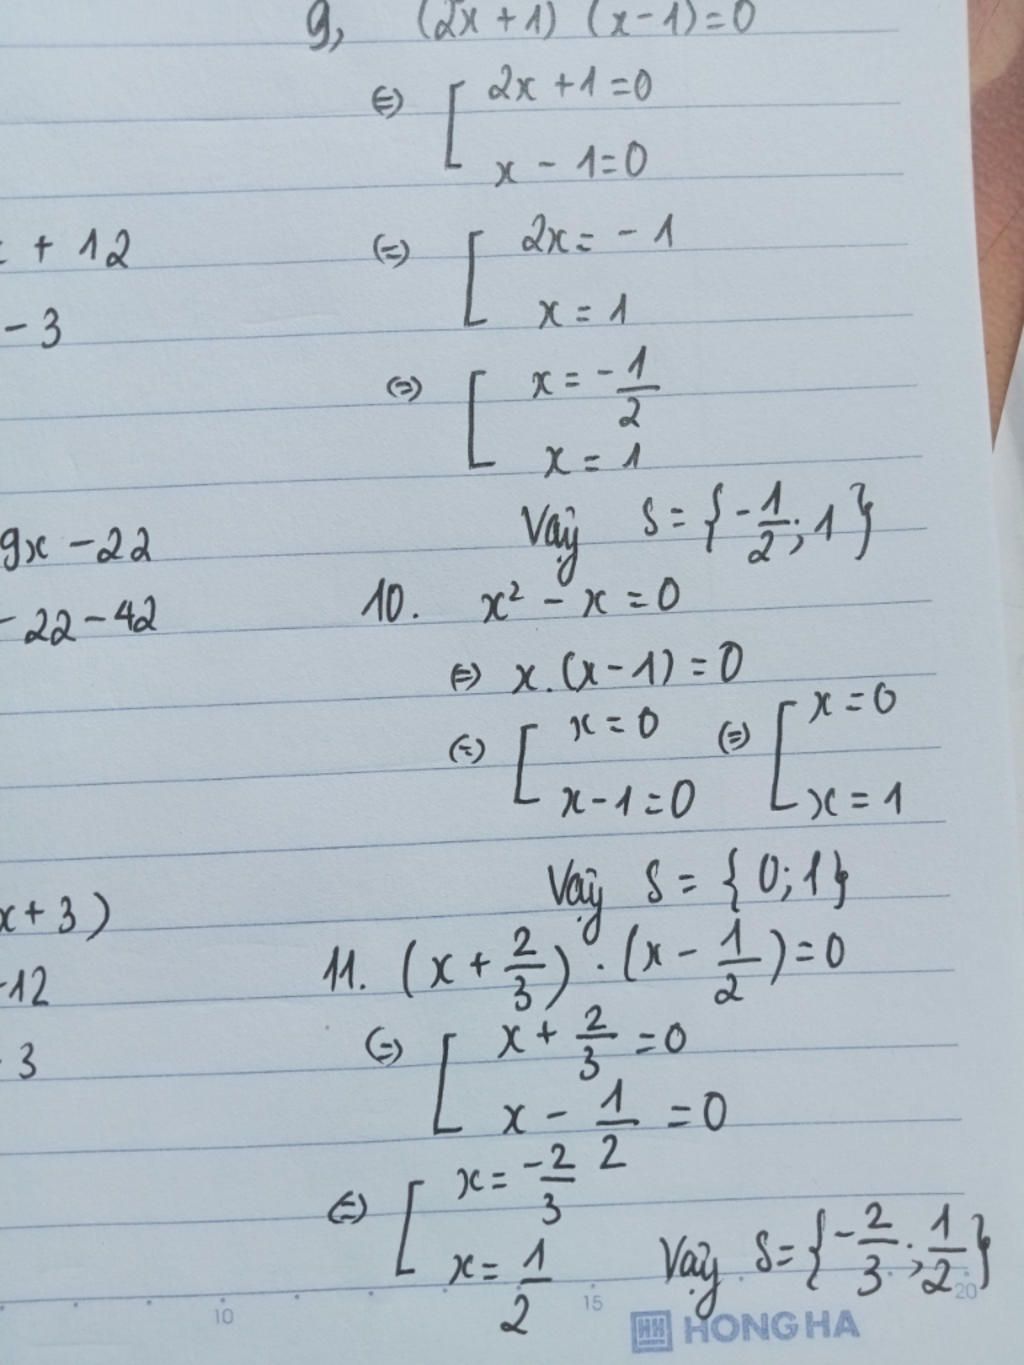 9, (2x + 1) (x - 1) = 0
⇔ [ 2x + 1 = 0
x - 1 = 0
+ 12
⇔ [ 2x = - 1
x = 1
- 3
⇔ [ x = - 1/2
x = 1
Vậy S = { - 1/2 ; 1 }
9x - 22
- 22 - 42
10. x² - x = 0
⇔ x . (x - 1) = 0
⇔ [ x = 0 ⇔ [ x = 0
x - 1 = 0 x = 1
Vậy S = { 0 ; 1 }
x + 3 )
11. (x + 2/3) . (x - 1/2) = 0
- 12
⇔ [ x + 2/3 = 0
3
x - 1/2 = 0
⇔ [ x = -2/3
x = 1/2 Vậy S = { - 2/3 ; 1/2 }
10 15 20
HONG HA